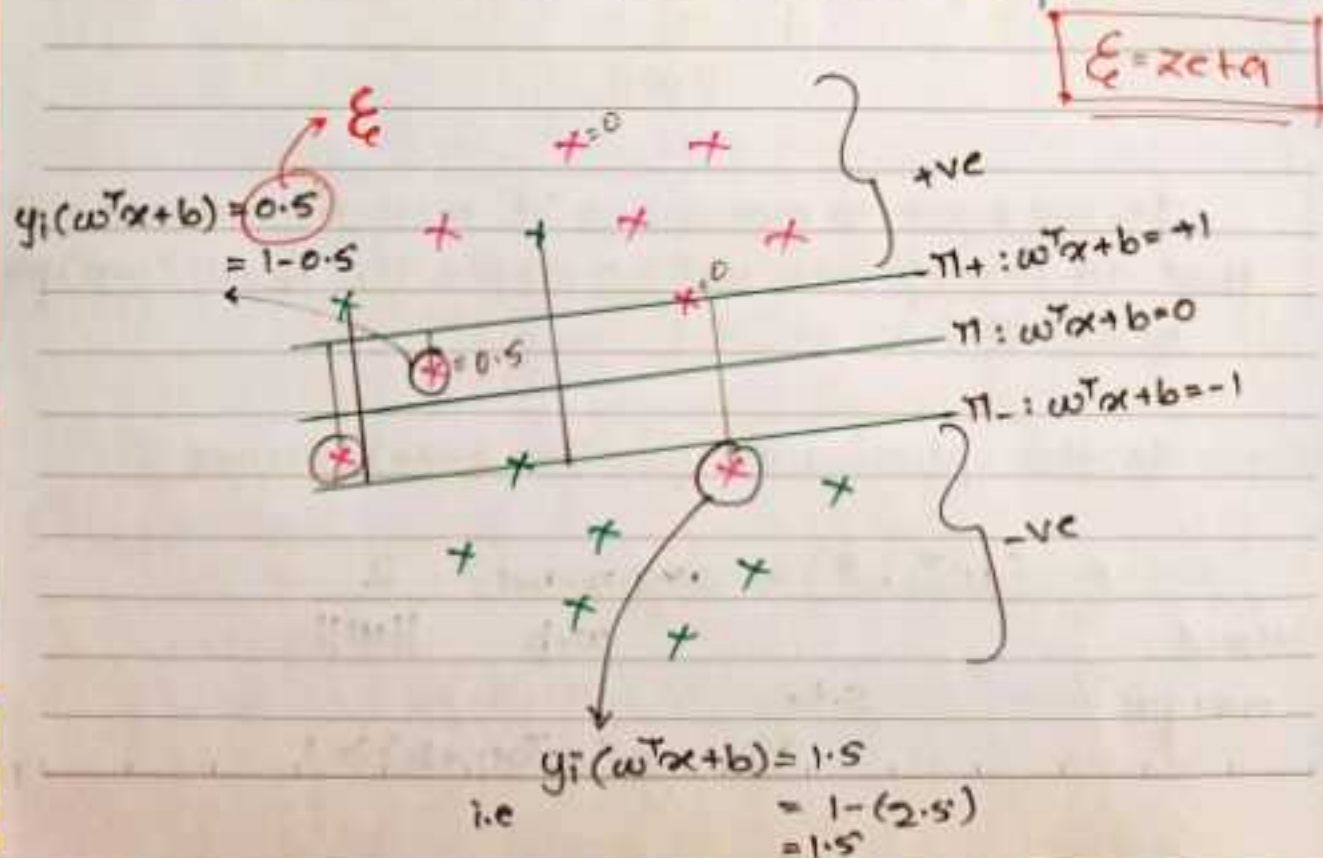 ξ = zeta
ξ
+=0
+ve
yi(ωᵀx+b) = 0.5
= 1-0.5
π+ : ωᵀx+b=+1
0
π : ωᵀx+b=0
=0.5
π- : ωᵀx+b=-1
-ve
yi(ωᵀx+b)= 1.5
i.e = 1-(2.5)
=1.5